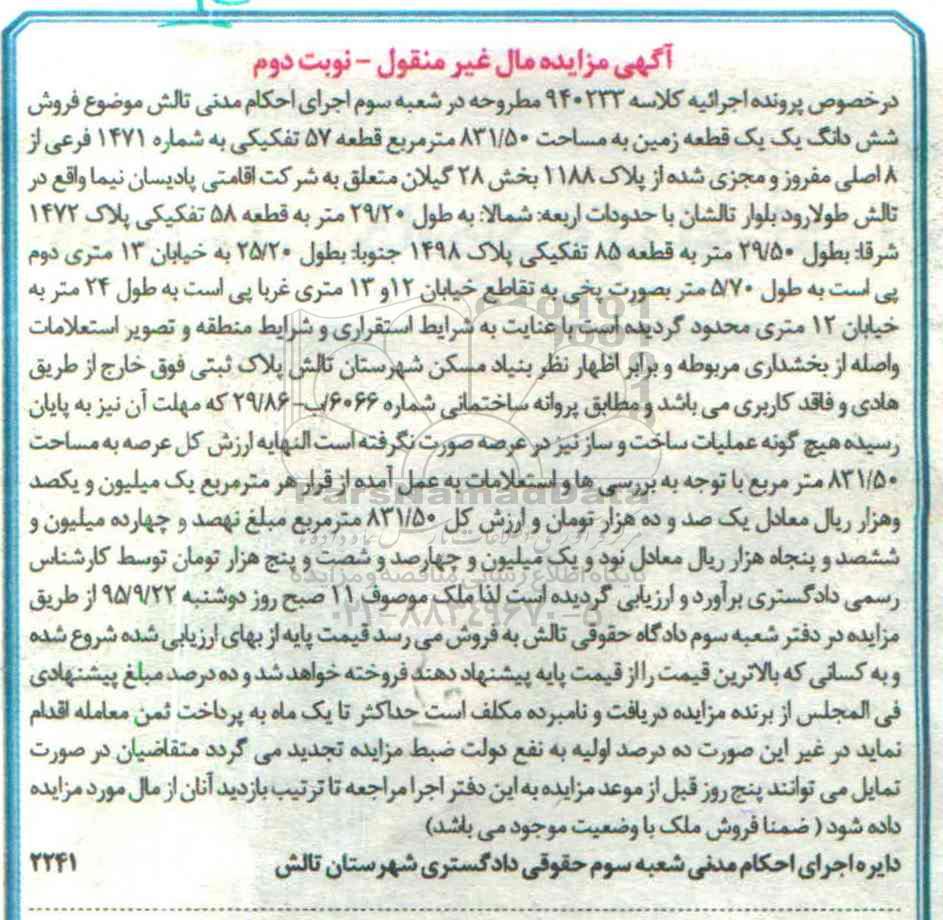 آگهی مزایده مال غیر منقول - نوبت دوم
درخصوص پرونده اجرائیه کلاسه ۹۴۰۲۳۳ مطروحه در شعبه سوم اجرای احکام مدنی تالش موضوع فروش
شش دانگ یک یک قطعه زمین به مساحت ۸۳۱/۵۰ مترمربع قطعه ۵۷ تفکیکی به شماره ۱۴۷۱ فرعی از
۸ اصلی مفروز و مجزی شده از پلاک ۱۱۸۸ بخش ۲۸ گیلان متعلق به شرکت اقامتی پادیسان نیما واقع در
تالش طولارود بلوار تالشان با حدودات اربعه: شمالا: به طول ۲۹/۲۰ متر به قطعه ۵۸ تفکیکی پلاک ۱۴۷۲
شرقا: بطول ۲۹/۵۰ متر به قطعه ۸۵ تفکیکی پلاک ۱۴۹۸ جنوبا: بطول ۲۵/۲۰ به خیابان ۱۳ متری دوم
پی است به طول ۵/۷۰ متر بصورت پخی به تقاطع خیابان ۱۲و ۱۳ متری غربا پی است به طول ۲۴ متر به
خیابان ۱۲ متری محدود گردیده است با عنایت به شرایط استقراری و شرایط منطقه و تصویر استعلامات
واصله از بخشداری مربوطه و برابر اظهار نظر بنیاد مسکن شهرستان تالش پلاک ثبتی فوق خارج از طریق
هادی و فاقد کاربری می باشد و مطابق پروانه ساختمانی شماره ۶۰۶۶/ب-۲۹/۸۶ که مهلت آن نیز به پایان
رسیده هیچ گونه عملیات ساخت و ساز نیز در عرصه صورت نگرفته است النهایه ارزش کل عرصه به مساحت
۸۳۱/۵۰ متر مربع با توجه به بررسی ها و استعلامات به عمل آمده از قرار هر مترمربع یک میلیون و یکصد
وهزار ریال معادل یک صد و ده هزار تومان و ارزش کل ۸۳۱/۵۰ مترمربع مبلغ نهصد و چهارده میلیون و
ششصد و پنجاه هزار ریال معادل نود و یک میلیون و چهارصد و شصت و پنج هزار تومان توسط کارشناس
رسمی دادگستری برآورد و ارزیابی گردیده است لذا ملک موصوف ۱۱ صبح روز دوشنبه ۹۵/۹/۲۲ از طریق
مزایده در دفتر شعبه سوم دادگاه حقوقی تالش به فروش می رسد قیمت پایه از بهای ارزیابی شده شروع شده
و به کسانی که بالاترین قیمت را از قیمت پایه پیشنهاد دهند فروخته خواهد شد و ده درصد مبلغ پیشنهادی
فی المجلس از برنده مزایده دریافت و نامبرده مکلف است حداکثر تا یک ماه به پرداخت ثمن معامله اقدام
نماید در غیر این صورت ده درصد اولیه به نفع دولت ضبط مزایده تجدید می گردد متقاضیان در صورت
تمایل می توانند پنج روز قبل از موعد مزایده به این دفتر اجرا مراجعه تا ترتیب بازدید آنان از مال مورد مزایده
داده شود ( ضمنا فروش ملک با وضعیت موجود می باشد)
دایره اجرای احکام مدنی شعبه سوم حقوقی دادگستری شهرستان تالش ۲۲۴۱
ParsNamadData
پایگاه اطلاع رسانی مناقصه و مزایده
۰۲۱-۸۸۳۴۹۶۷۰-۵